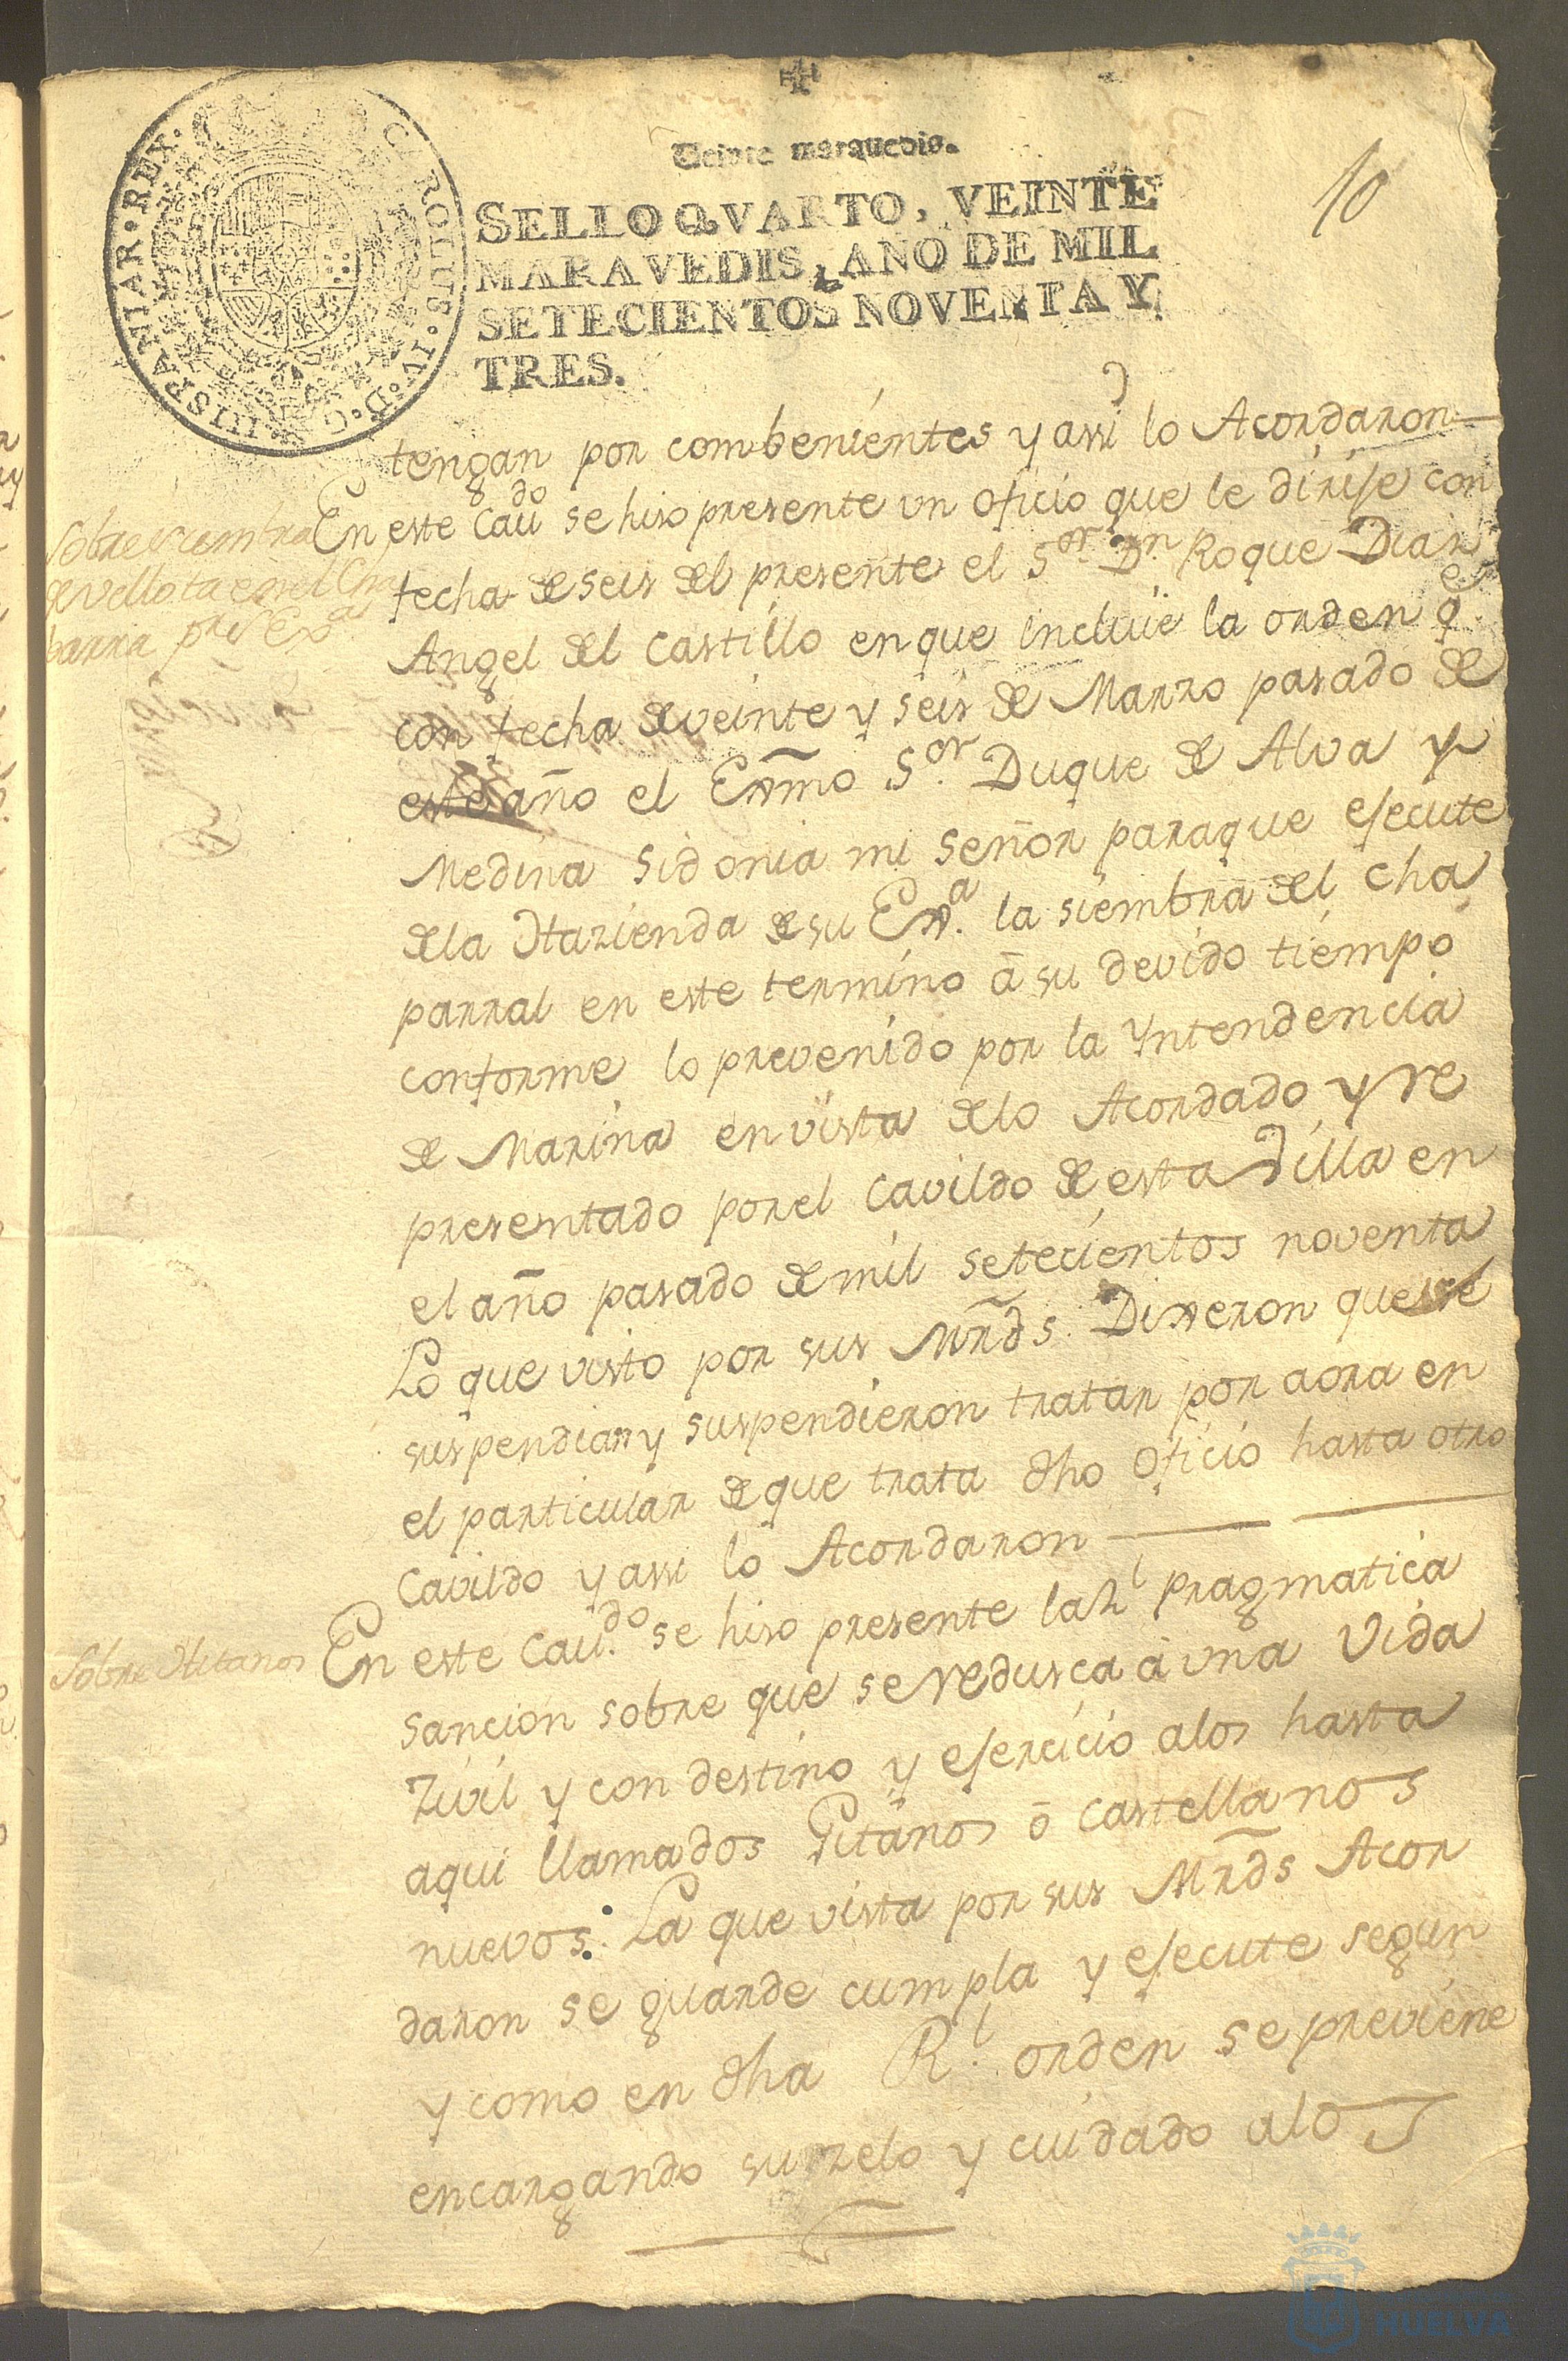 Veinte marauedis.
SELLO QVARTO, VEINTE
MARAVEDIS, AÑO DE MIL
SETECIENTOS NOVENTA Y
TRES.
CAROLUS. IV. D. G. HISPANIAR. REX.
10
tengan por combenientes y assi lo Acordaron
Sobre siembra
de vellota en el Cha
barral por S. Exª
En este Cauᵈᵒ se hiso presente un oficio que le dirije con
fecha de seis del presente el Sᵒʳ. Dⁿ. Roque Diaz
Angel del Castillo en que incluie la orden q.ᵉ
con fecha de veinte y seis de Marzo pasado de
este año el Exmõ Sᵒʳ. Duque de Alva y
Medina Sidonia mi señor paraque ejecute
dela Hazienda de su Exª. la siembra del cha
parral en este termino â su devido tiempo
conforme lo prevenido por la Yntendencia
de Marina en vista delo Acordado y re
presentado por el Cavildo de esta Villa en
el año pasado de mil setecientos noventa
Lo que visto por sus Mrds. Dixeron que se
suspendian y suspendieron tratar por aora en
el particular de que trata dho oficio hasta otro
Cavildo y assi lo Acordaron
Sobre Gitanos
En este Cau.ᵈᵒ se hiso presente la Rˡ pragmatica
sancion sobre que se redusca a una Vida
Zivil y con destino y ejercicio alos hasta
aqui llamados Gitanos ô castellanos
nuevos: La que vista por sus Mrds Acor
daron se guarde cumpla y ejecute segun
y como en dha R.ˡ orden se previene
encargando su zelo y cuidado alos
HUELVA